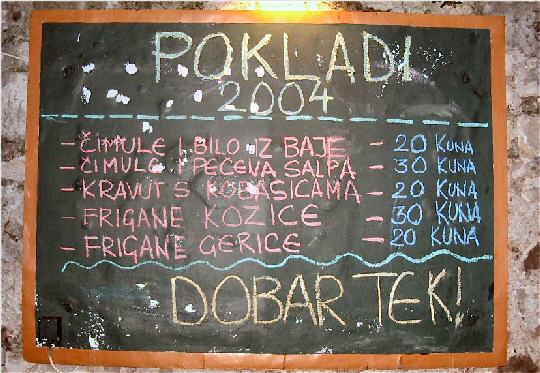 POKLADI
2004
- ČIMULE I BILO IZ BAJE - 20 KUNA
- ČIMULE I PEČENA SALPA - 30 KUNA
- KRAVUT S KOBASICAMA - 20 KUNA
- FRIGANE KOZICE - 30 KUNA
- FRIGANE GERICE - 20 KUNA
DOBAR TEK!